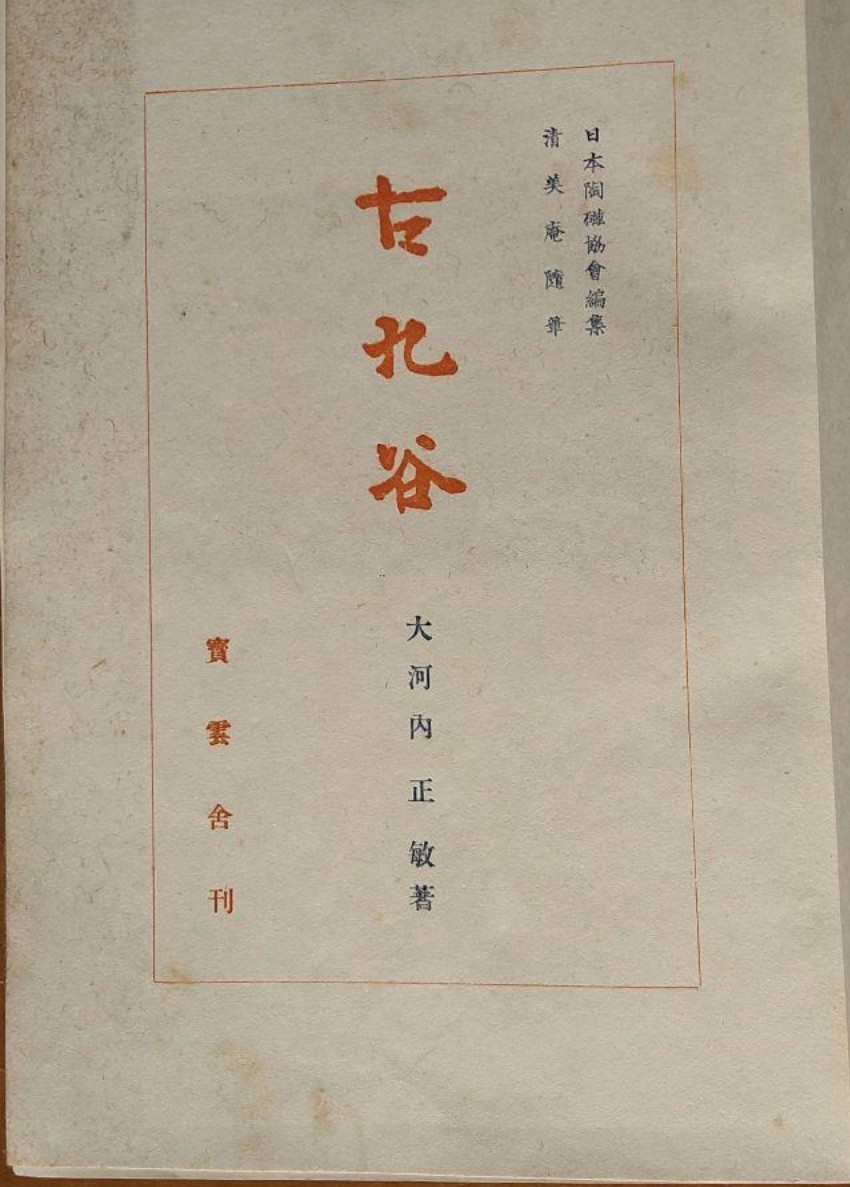 日本陶磁協會編集
清美庵隨筆
古九谷
大河內正敏著
寶雲舍刊